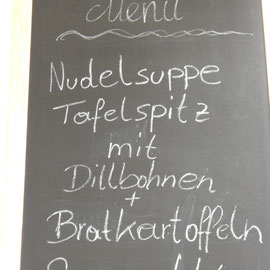 Menü
Nudelsuppe
Tafelspitz
mit
Dillbohnen
+
Bratkartoffeln